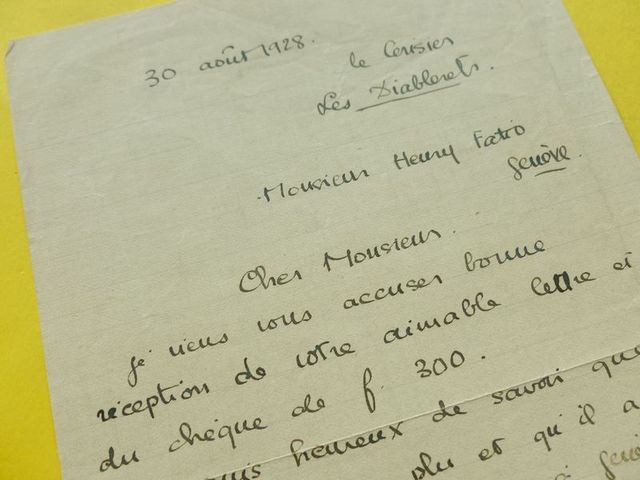 30 août 1928.
le Cerisier
Les Diablerets.
Monsieur Henry Fatio
Genève.
Cher Monsieur.
je viens vous accuser bonne
réception de votre aimable lettre et
du chèque de f. 300.
suis heureux de savoir que
plus et qu'il a
à